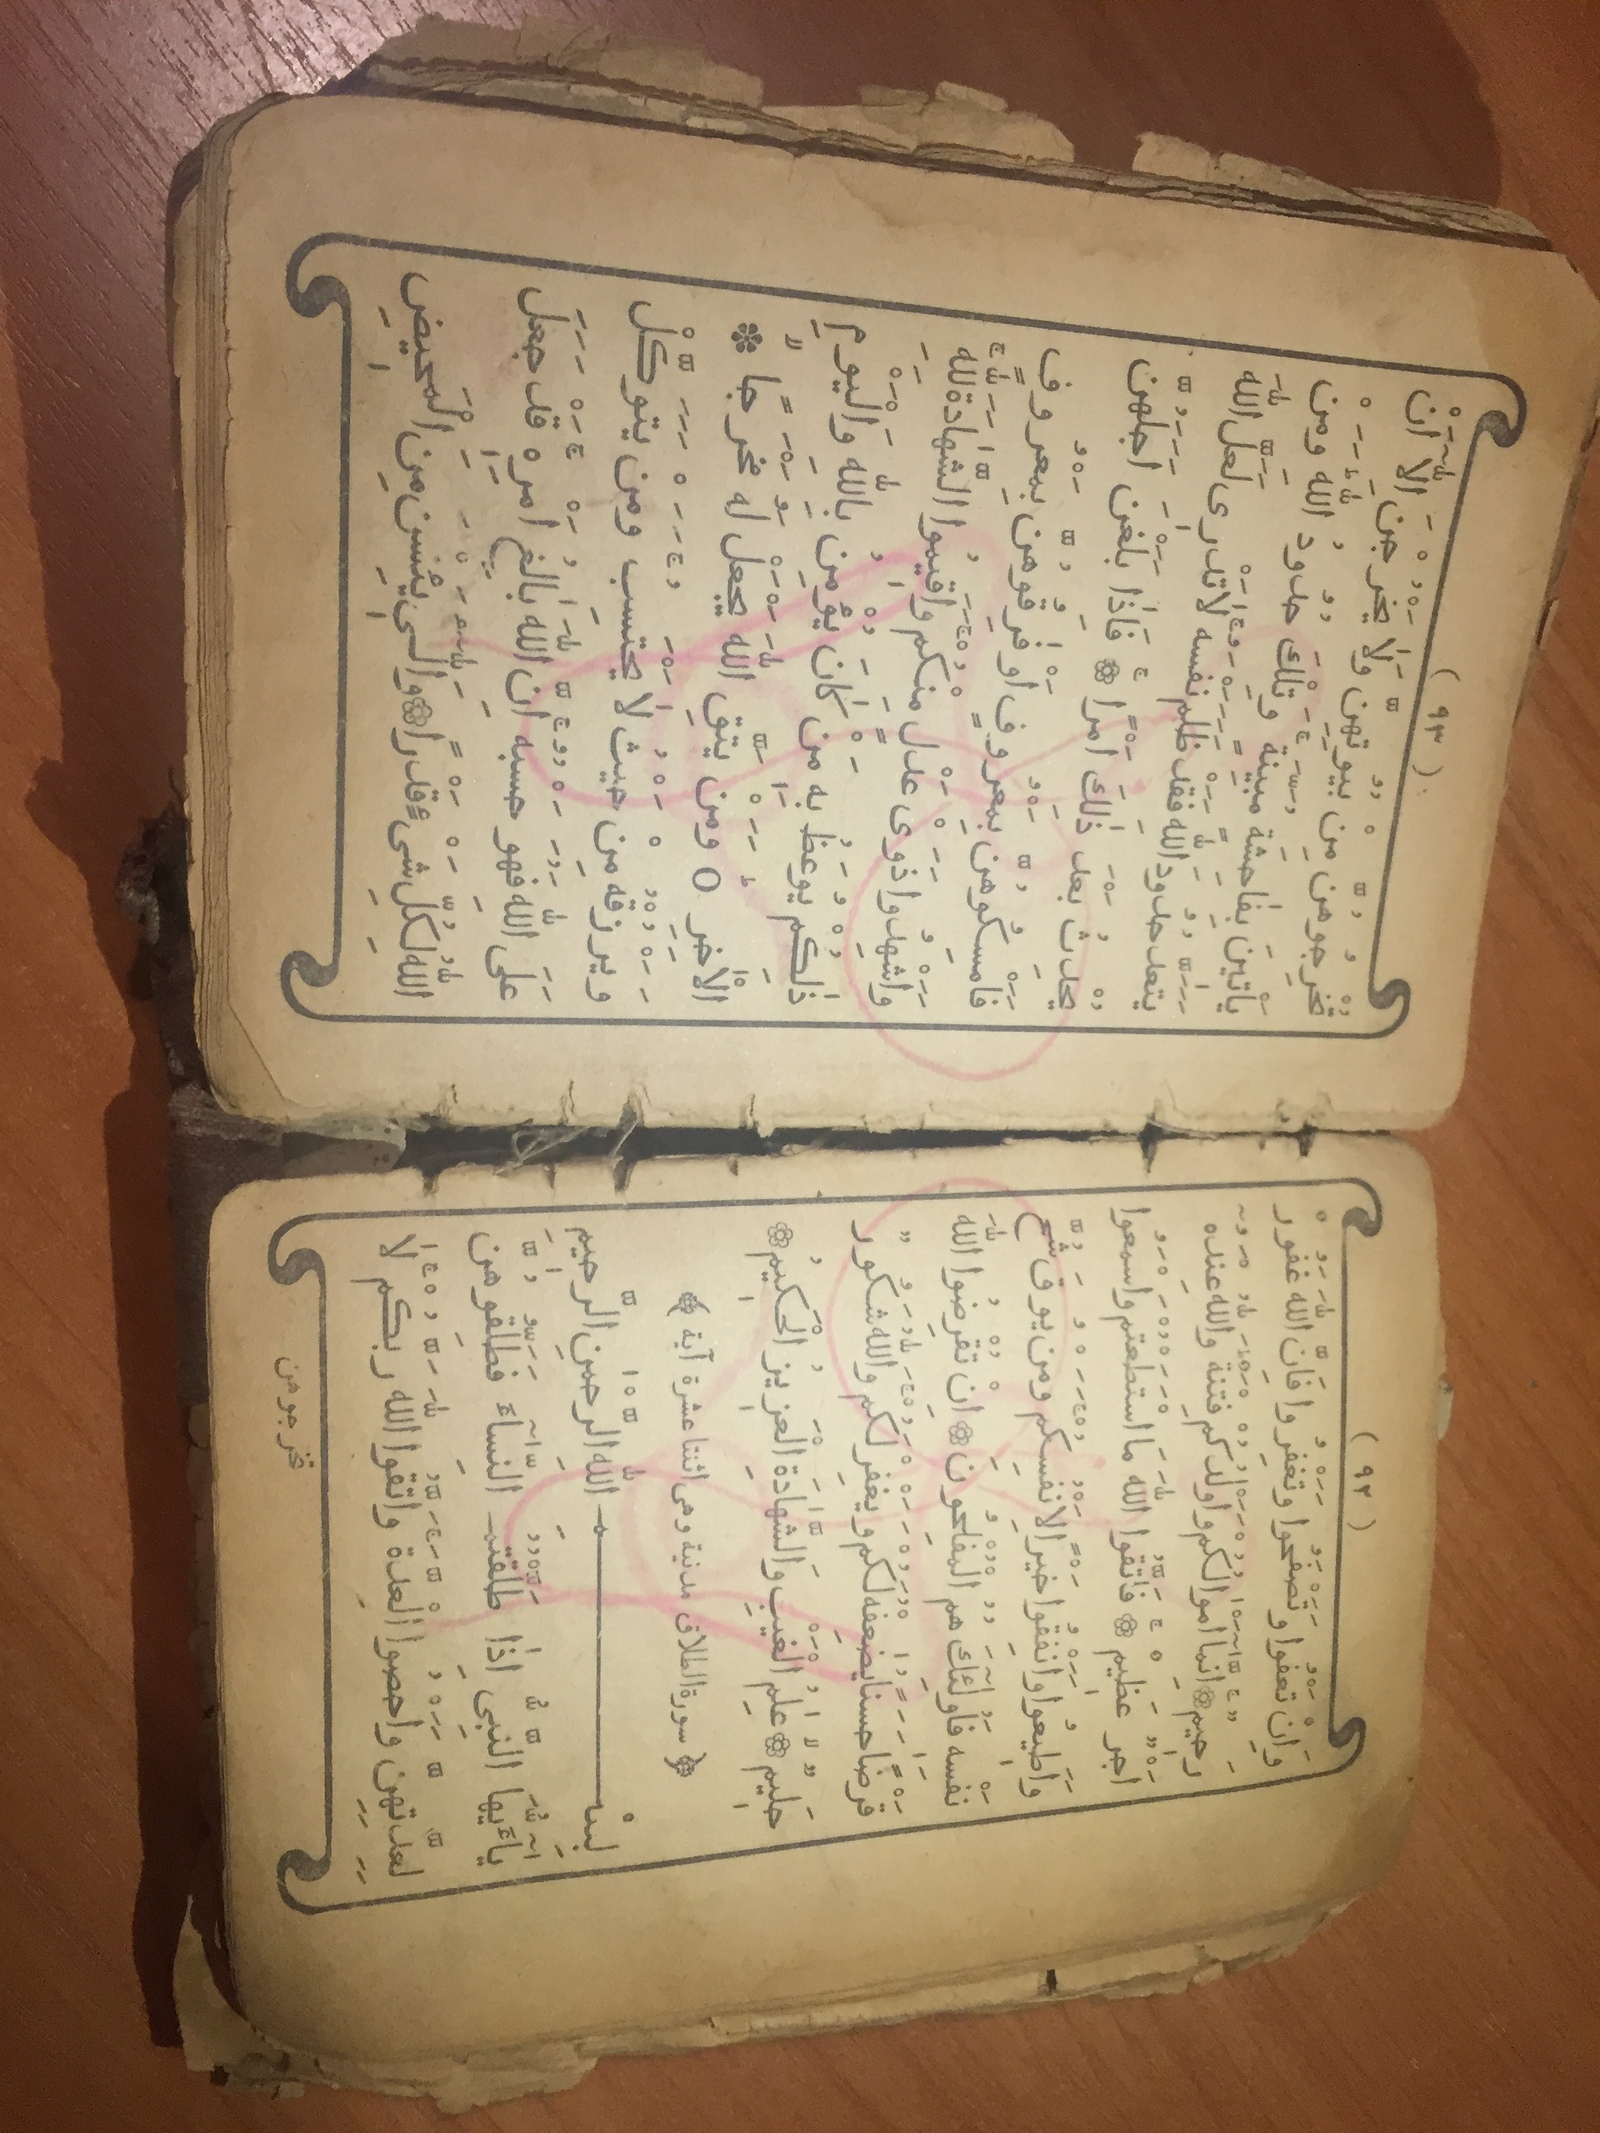 (٩٢)
وَاِنْ تَعْفُوا وَتَصْفَحُوا وَتَغْفِرُوا فَاِنَّ اللّٰهَ غَفُورٌ
رَحِيمٌ ❁ اِنَّمَٓا اَمْوَالُكُمْ وَاَوْلٰدُكُمْ فِتْنَةٌ وَاللّٰهُ عِنْدَهُٓ
اَجْرٌ عَظِيمٌ ❁ فَاتَّقُوا اللّٰهَ مَا اسْتَطَعْتُمْ وَاسْمَعُوا
وَاَطِيعُوا وَاَنْفِقُوا خَيْرًا لِاَنْفُسِكُمْ وَمَنْ يُوقَ شُحَّ
نَفْسِهِ فَاُولٰٓئِكَ هُمُ الْمُفْلِحُونَ ❁ اِنْ تُقْرِضُوا اللّٰهَ
قَرْضًا حَسَنًا يُضٰعِفْهُ لَكُمْ وَيَغْفِرْ لَكُمْ وَاللّٰهُ شَكُورٌ
حَلِيمٌ ❁ عٰلِمُ الْغَيْبِ وَالشَّهَادَةِ الْعَزِيزُ الْحَكِيمُ ❁
﴿ سورة الطلاق مدنية وهى اثنتا عشرة آية ﴾
بِسْمِ اللّٰهِ الرَّحْمٰنِ الرَّحِيمِ
يَٓا اَيُّهَا النَّبِىُّ اِذَا طَلَّقْتُمُ النِّسَٓاءَ فَطَلِّقُوهُنَّ
لِعِدَّتِهِنَّ وَاَحْصُوا الْعِدَّةَ وَاتَّقُوا اللّٰهَ رَبَّكُمْ لَا
تخرجوهن
(٩٣)
تُخْرِجُوهُنَّ مِنْ بُيُوتِهِنَّ وَلَا يَخْرُجْنَ اِلَّٓا اَنْ
يَأْتِينَ بِفَاحِشَةٍ مُبَيِّنَةٍ وَتِلْكَ حُدُودُ اللّٰهِ وَمَنْ
يَتَعَدَّ حُدُودَ اللّٰهِ فَقَدْ ظَلَمَ نَفْسَهُ لَا تَدْرِى لَعَلَّ اللّٰهَ
يُحْدِثُ بَعْدَ ذٰلِكَ اَمْرًا ❁ فَاِذَا بَلَغْنَ اَجَلَهُنَّ
فَاَمْسِكُوهُنَّ بِمَعْرُوفٍ اَوْ فَارِقُوهُنَّ بِمَعْرُوفٍ
وَاَشْهِدُوا ذَوَىْ عَدْلٍ مِنْكُمْ وَاَقِيمُوا الشَّهَادَةَ لِلّٰهِ
ذٰلِكُمْ يُوعَظُ بِهِ مَنْ كَانَ يُؤْمِنُ بِاللّٰهِ وَالْيَوْمِ
الْاٰخِرِ ○ وَمَنْ يَتَّقِ اللّٰهَ يَجْعَلْ لَهُ مَخْرَجًا ❁
وَيَرْزُقْهُ مِنْ حَيْثُ لَا يَحْتَسِبُ وَمَنْ يَتَوَكَّلْ
عَلَى اللّٰهِ فَهُوَ حَسْبُهُ اِنَّ اللّٰهَ بَالِغُ اَمْرِهِ قَدْ جَعَلَ
اللّٰهُ لِكُلِّ شَىْءٍ قَدْرًا ❁ وَالّٰٓـِٔى يَئِسْنَ مِنَ الْمَحِيضِ